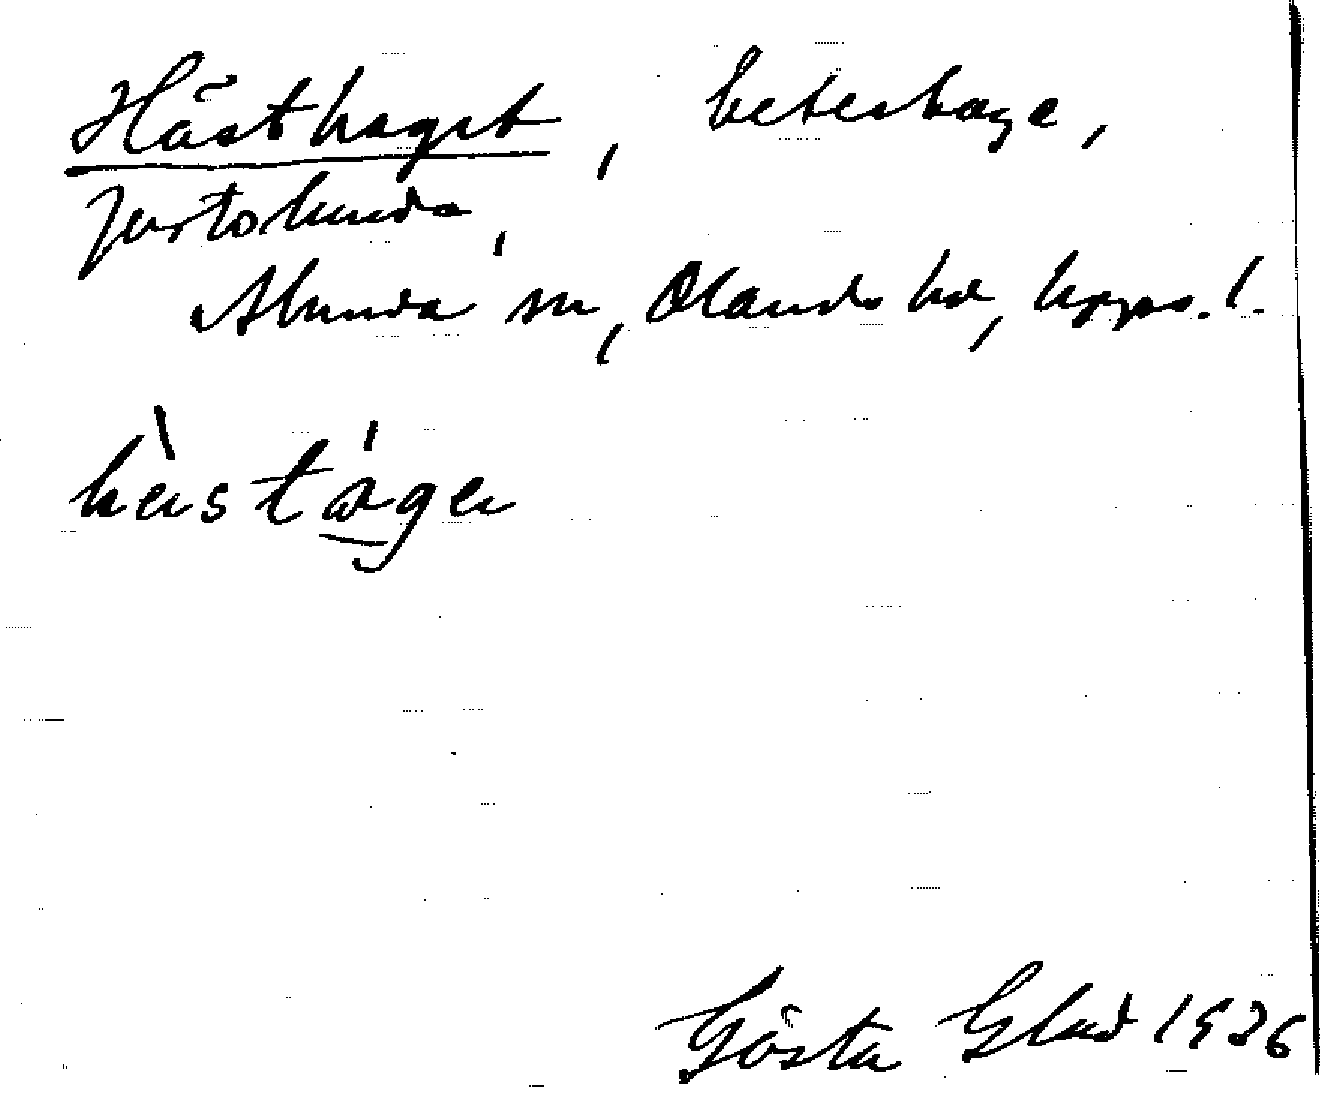 Hästhaget, beteshage,
Jertolunda,
Alunda sn, Olands hd, Upps. l.
hæ̀stáger
Gösta Glad 1926